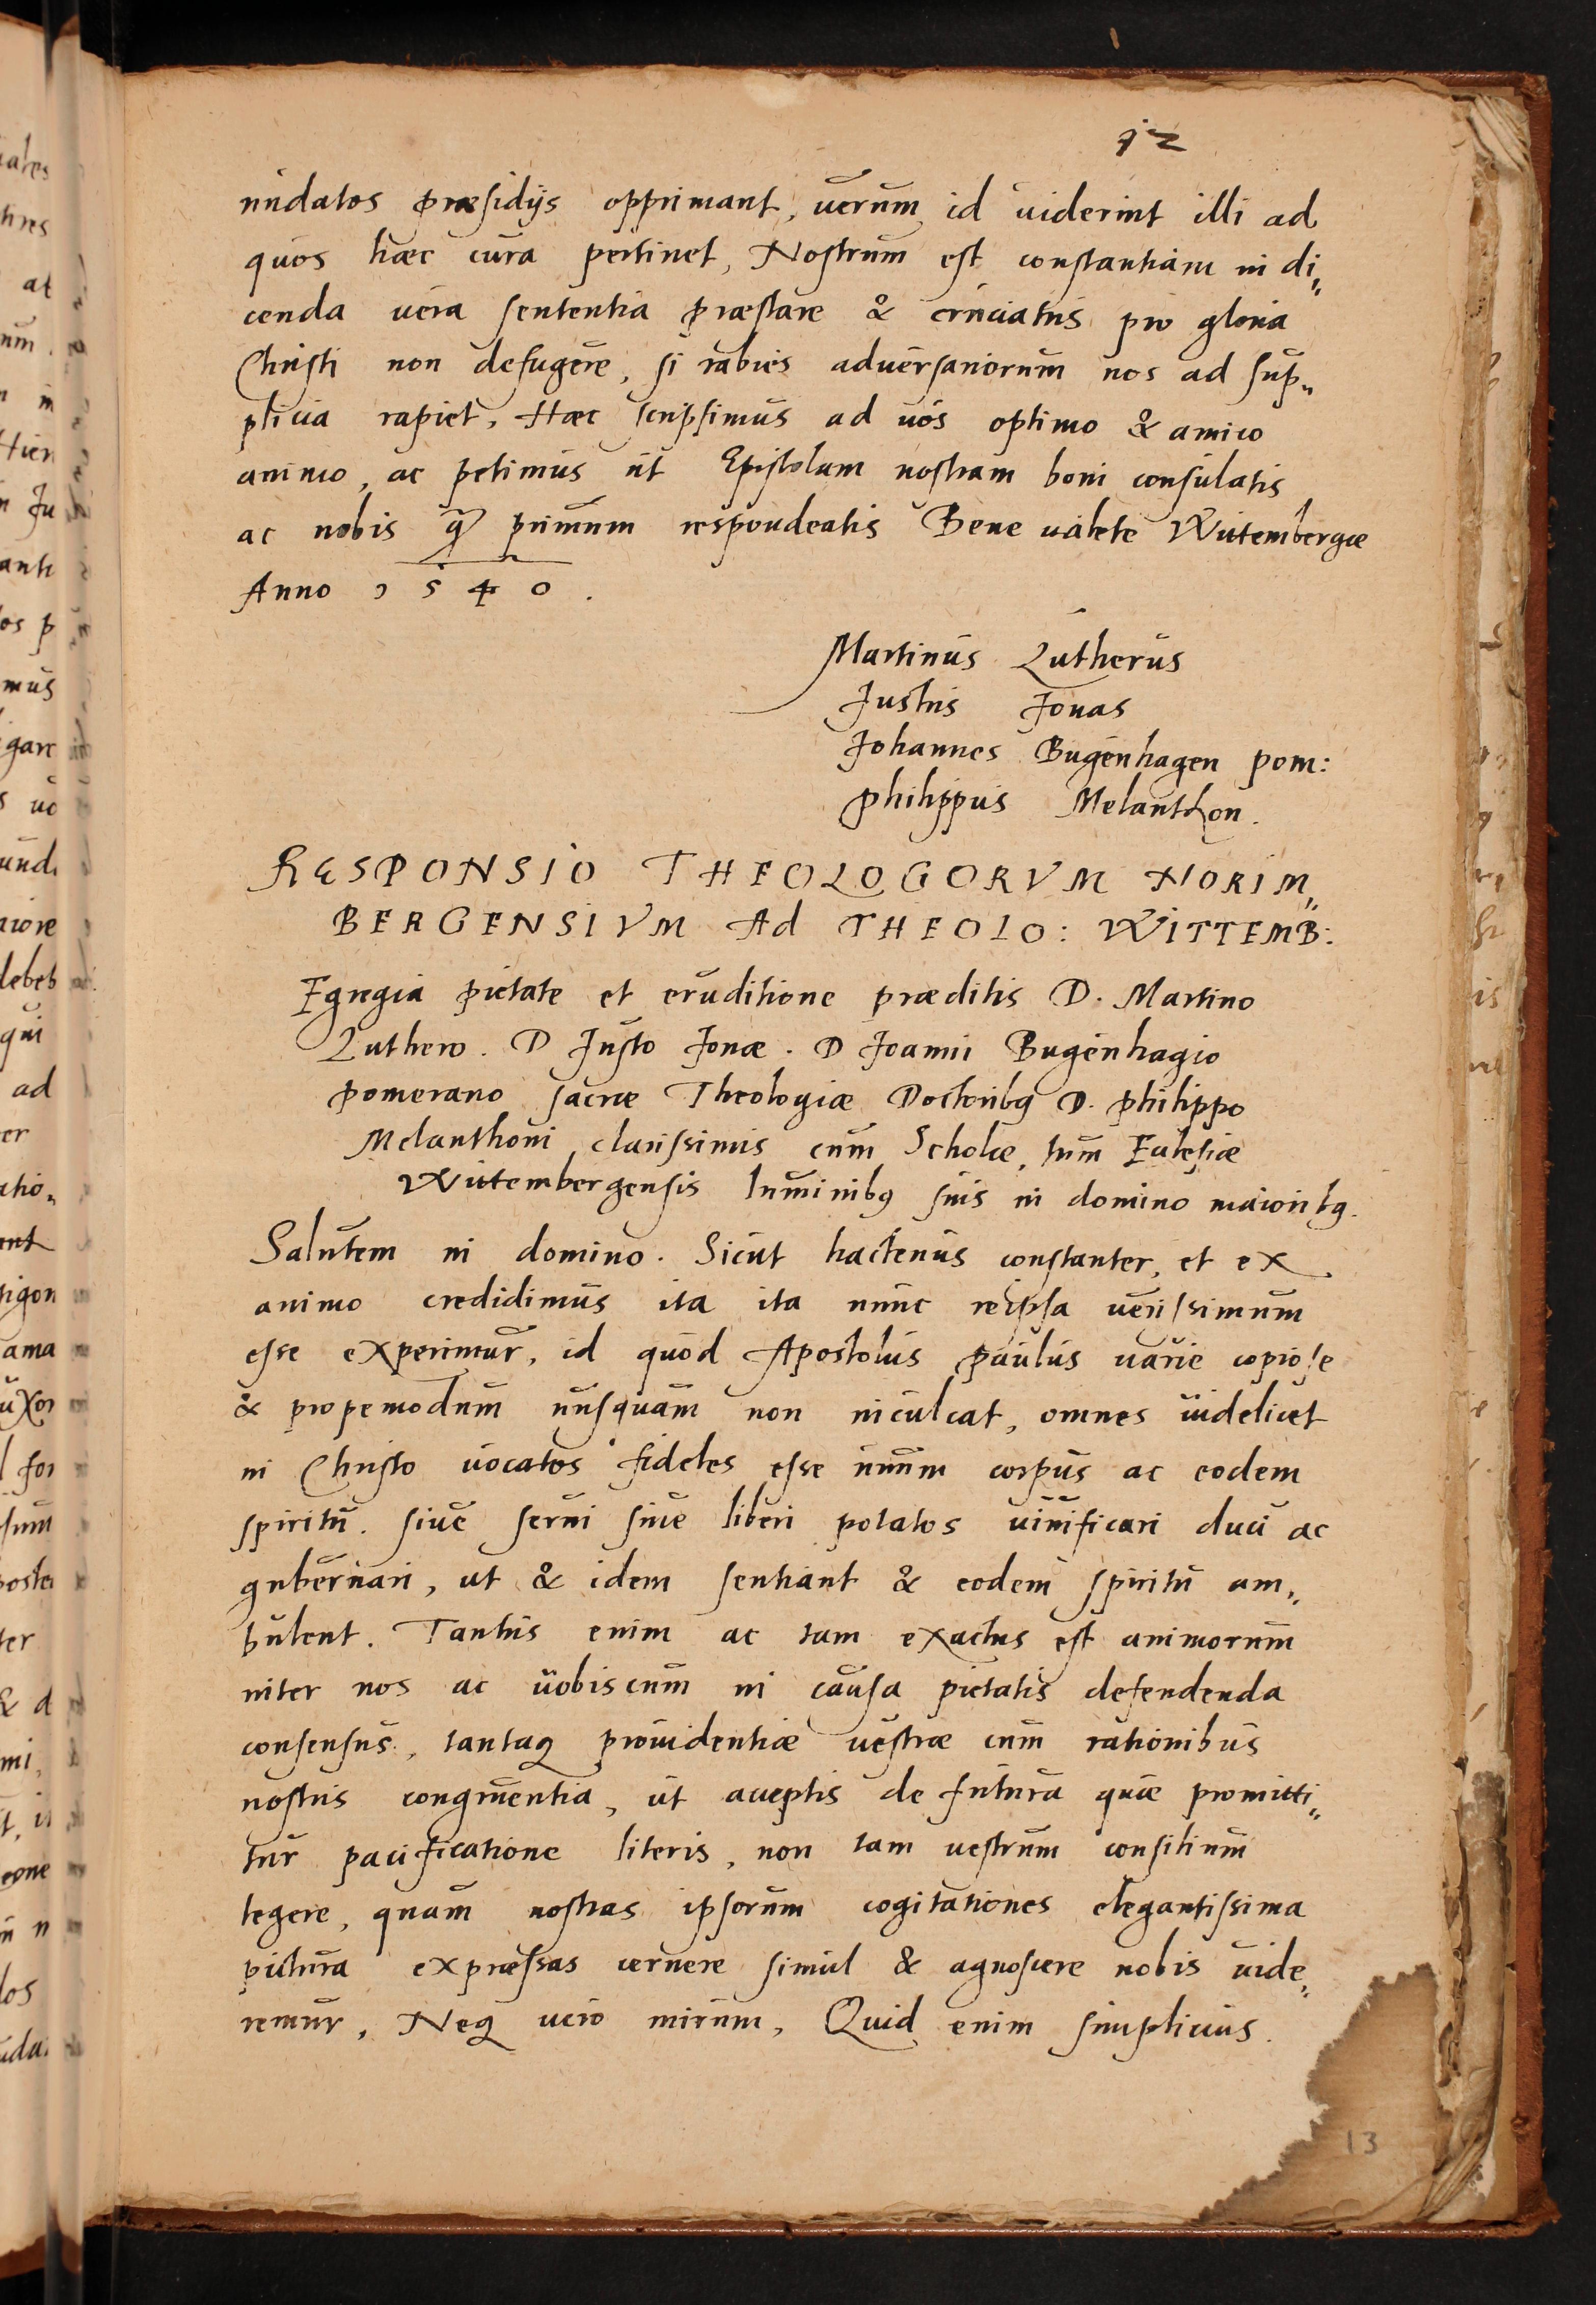 12
nudatos præsidijs opprimant, uerum id uiderint illi ad
quos hæc cura pertinet, Nostrum est constantiam in di„
cenda uera sententia præstare & cruciatus pro gloria
Christi non defugere, si rabies aduersariorum nos ad sup„
plicia rapiet, Hæc scripsimus ad uos optimo & amico
animo, ac petimus ut Epistolam nostram boni consulatis
ac nobis q̃ primum respondeatis Bene ualete Wittembergæ
Anno 1540.
Martinus Lutherus
Justus Jonas
Johannes Bugenhagen pom:
philippus Melanthon.
RESPONSIO THEOLOGORVM NORIM„
BERGENSIVM Ad THEOLO: WITTEMB:
Egregia pietate et eruditione præditis D. Martino
Luthero. D Justo Jonæ. D Joanni Bugenhagio
pomerano sacræ Theologiæ Doctoribꝫ D. philippo
Melanthoni clarissimis cum Scholæ, tum Ecclesiæ
Wittembergensis luminibꝫ suis in domino maioribꝫ.
Salutem in domino. Sicut hactenus constanter, et ex
animo credidimus ita ita nunc reipsa uerissimum
esse experimur, id quod Apostolus paulus uarie copiose
& propemodum nusquam non inculcat, omnes uidelicet
in Christo uocatos fideles esse unum corpus ac eodem
spiritu. siue serui siue liberi potatos uiuificari duci ac
gubernari, ut & idem sentiant & eodem spiritu am„
bulent. Tantus enim ac tam exactus est animorum
inter nos ac uobiscum in causa pietatis defendenda
consensus, tantaqꝫ prouidentiæ uestræ cum rationibus
nostris congruentia, ut acceptis de futura quæ promitti„
tur pacificatione literis, non tam uestrum consilium
legere, quam nostras ipsorum cogitationes elegantissima
pictura expressas cernere simul & agnoscere nobis uide„
remur, Neqꝫ uero mirum, Quid enim simplicius.
13